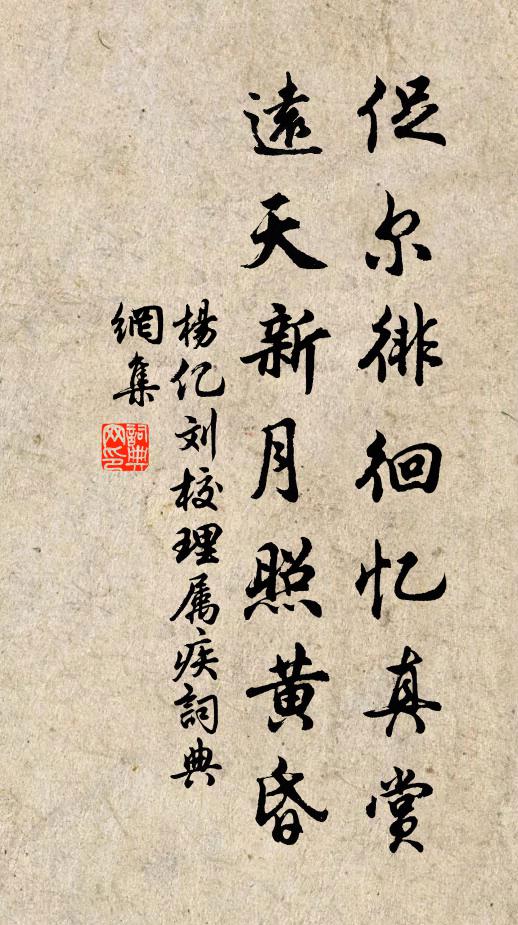 促尔徘徊忆真赏
遠天新月照黄昏
楊亿刘校理属疾詞典
網集
詞典
网印